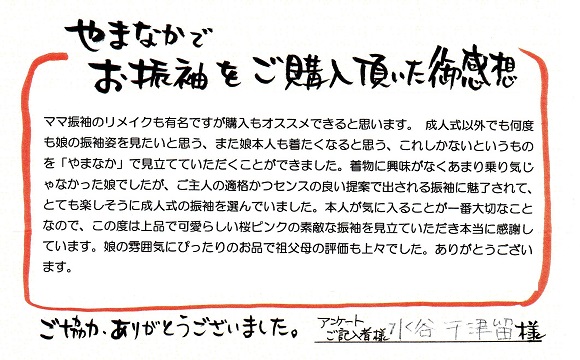 やまなかで
お振袖をご購入頂いた御感想
ママ振袖のリメイクも有名ですが購入もオススメできると思います。 成人式以外でも何度
も娘の振袖姿を見たいと思う、また娘本人も着たくなると思う、これしかないというもの
を「やまなか」で見立てていただくことができました。着物に興味がなくあまり乗り気じ
ゃなかった娘でしたが、ご主人の適格かつセンスの良い提案で出される振袖に魅了されて、
とても楽しそうに成人式の振袖を選んでいました。本人が気に入ることが一番大切なこと
なので、この度は上品で可愛らしい桜ピンクの素敵な振袖を見立ていただき本当に感謝し
ています。娘の雰囲気にぴったりのお品で祖父母の評価も上々でした。ありがとうござい
ます。
ご協力、ありがとうございました。
アンケート
ご記入者様 水谷 千津留 様